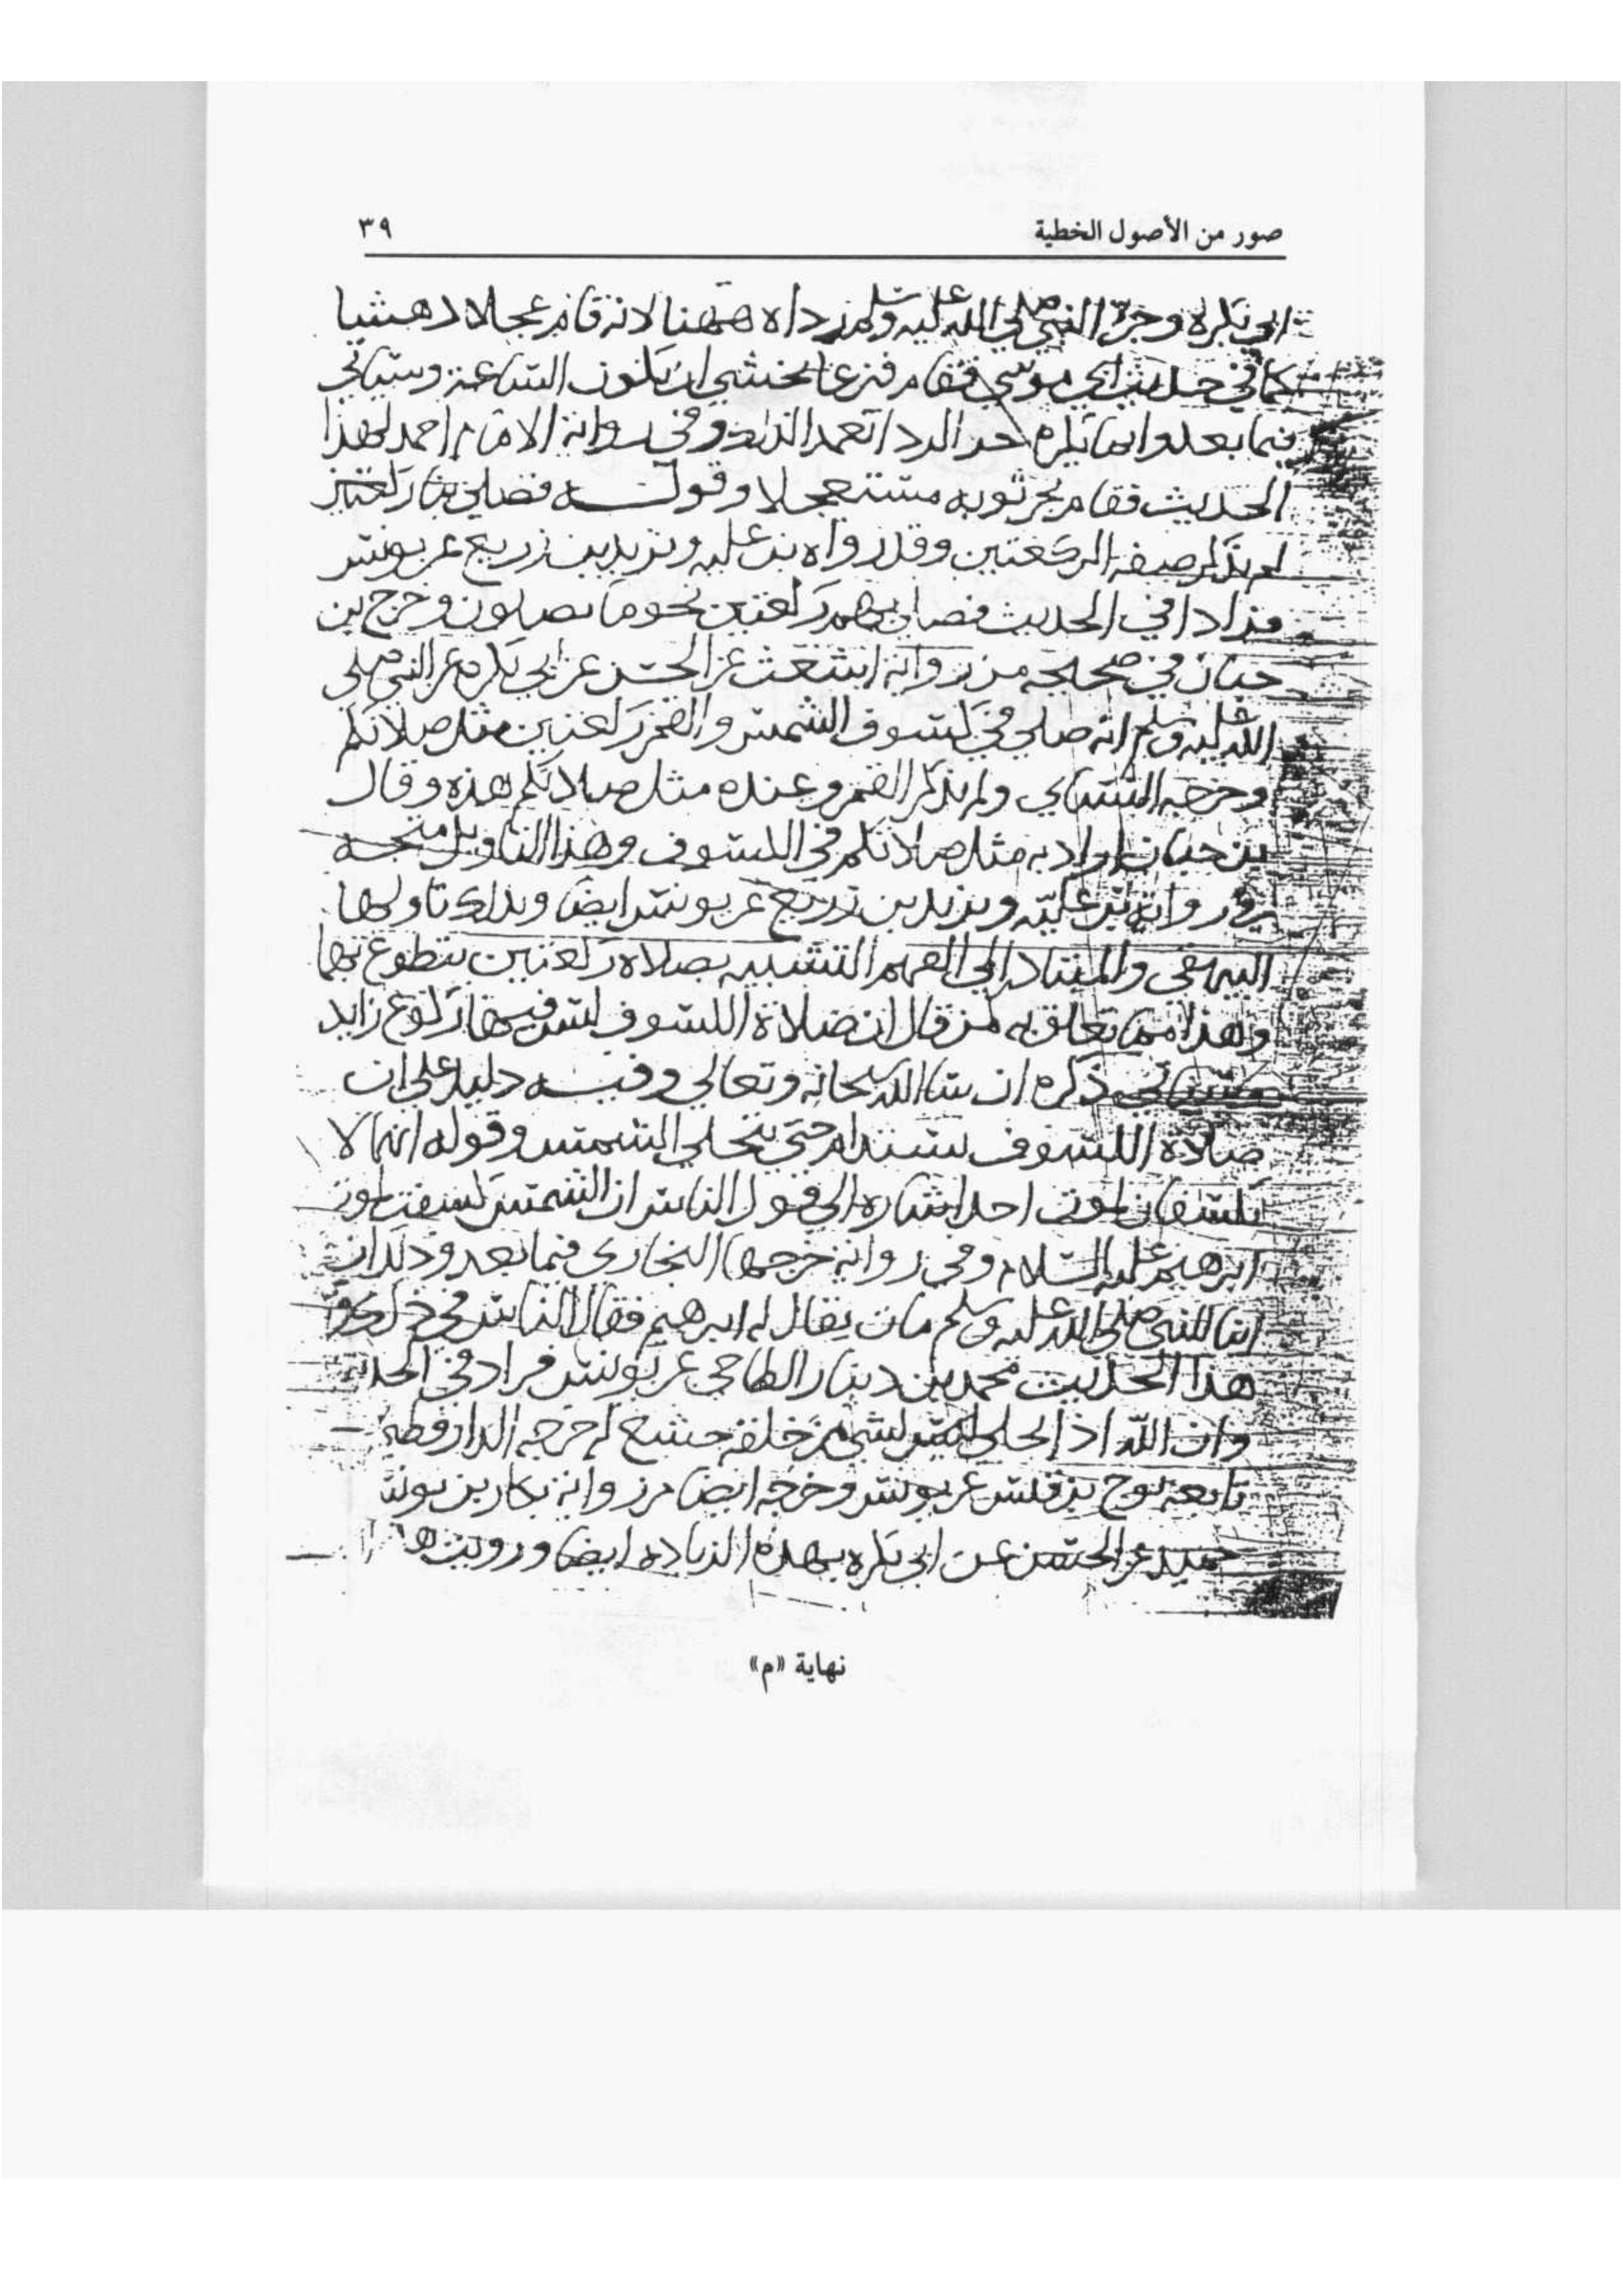 صور من الأصول الخطية
٣٩
ابي بكرة وجر النبي صلى الله عليه وسلم رداه ههنا لانه قام عجلا دهشا
كما في حديث ابي موسي فقام فزعا يخشى ان تكون الساعة وسياتي
فيما بعد وانما يكره جر الردا تعمدا لذلك وفي رواية الامام احمد لهذا
الحديث فقام يجر ثوبه مستعجلا وقوله فصلى بنا ركعتين
لم يذكر صفة الركعتين وقد رواه بن علية ويزيد بن زريع عن يونس
فزادا في الحديث فصلى بهم ركعتين نحو ما تصلون وخرج بن
حبان في صحيحه من رواية اشعث عن الحسن عن ابي بكرة عن النبي صلى
الله عليه وسلم انه صلى في كسوف الشمس والقمر ركعتين مثل صلاتكم
وخرجه النساي ولم يذكر القمر وعنده مثل صلاتكم هذه وقال
بن حبان اراد به مثل صلاتكم في الكسوف وهذا التاويل متجه
في رواية بن علية ويزيد بن زريع عن يونس ايضا وبذلك تاولها
البيهقي والمتبادر الى الفهم التشبيه بصلاة ركعتين يتطوع بهما
وهذا مما تعلق به من قال ان صلاة الكسوف ليس فيها ركوع زايد
وسياتي ذكره ان شا الله سبحانه وتعالى وفيه دليل على ان
صلاة الكسوف تستدام حتى تنجلي الشمس وقوله انهما لا
يكسفان لموت احد اشارة الى قول الناس ان الشمس كسفت لموت
ابرهيم عليه السلام وفي رواية خرجها البخاري فيما بعد وذلك ان
ابنا للنبي صلى الله عليه وسلم مات يقال له ابرهيم فقال الناس في ذلك
هذا الحديث محمد بن دينار الطاحي عن يونس فزاد في الحديث
وان الله اذا تجلى لشي من خلقه خشع له خرجه الدارقطني
تابعه نوح بن قيس عن يونس وخرجه ايضا من رواية بكار بن يونس
حميد عن الحسن عن ابي بكرة بهذه الزيادة ايضا ورويت
نهاية «م»